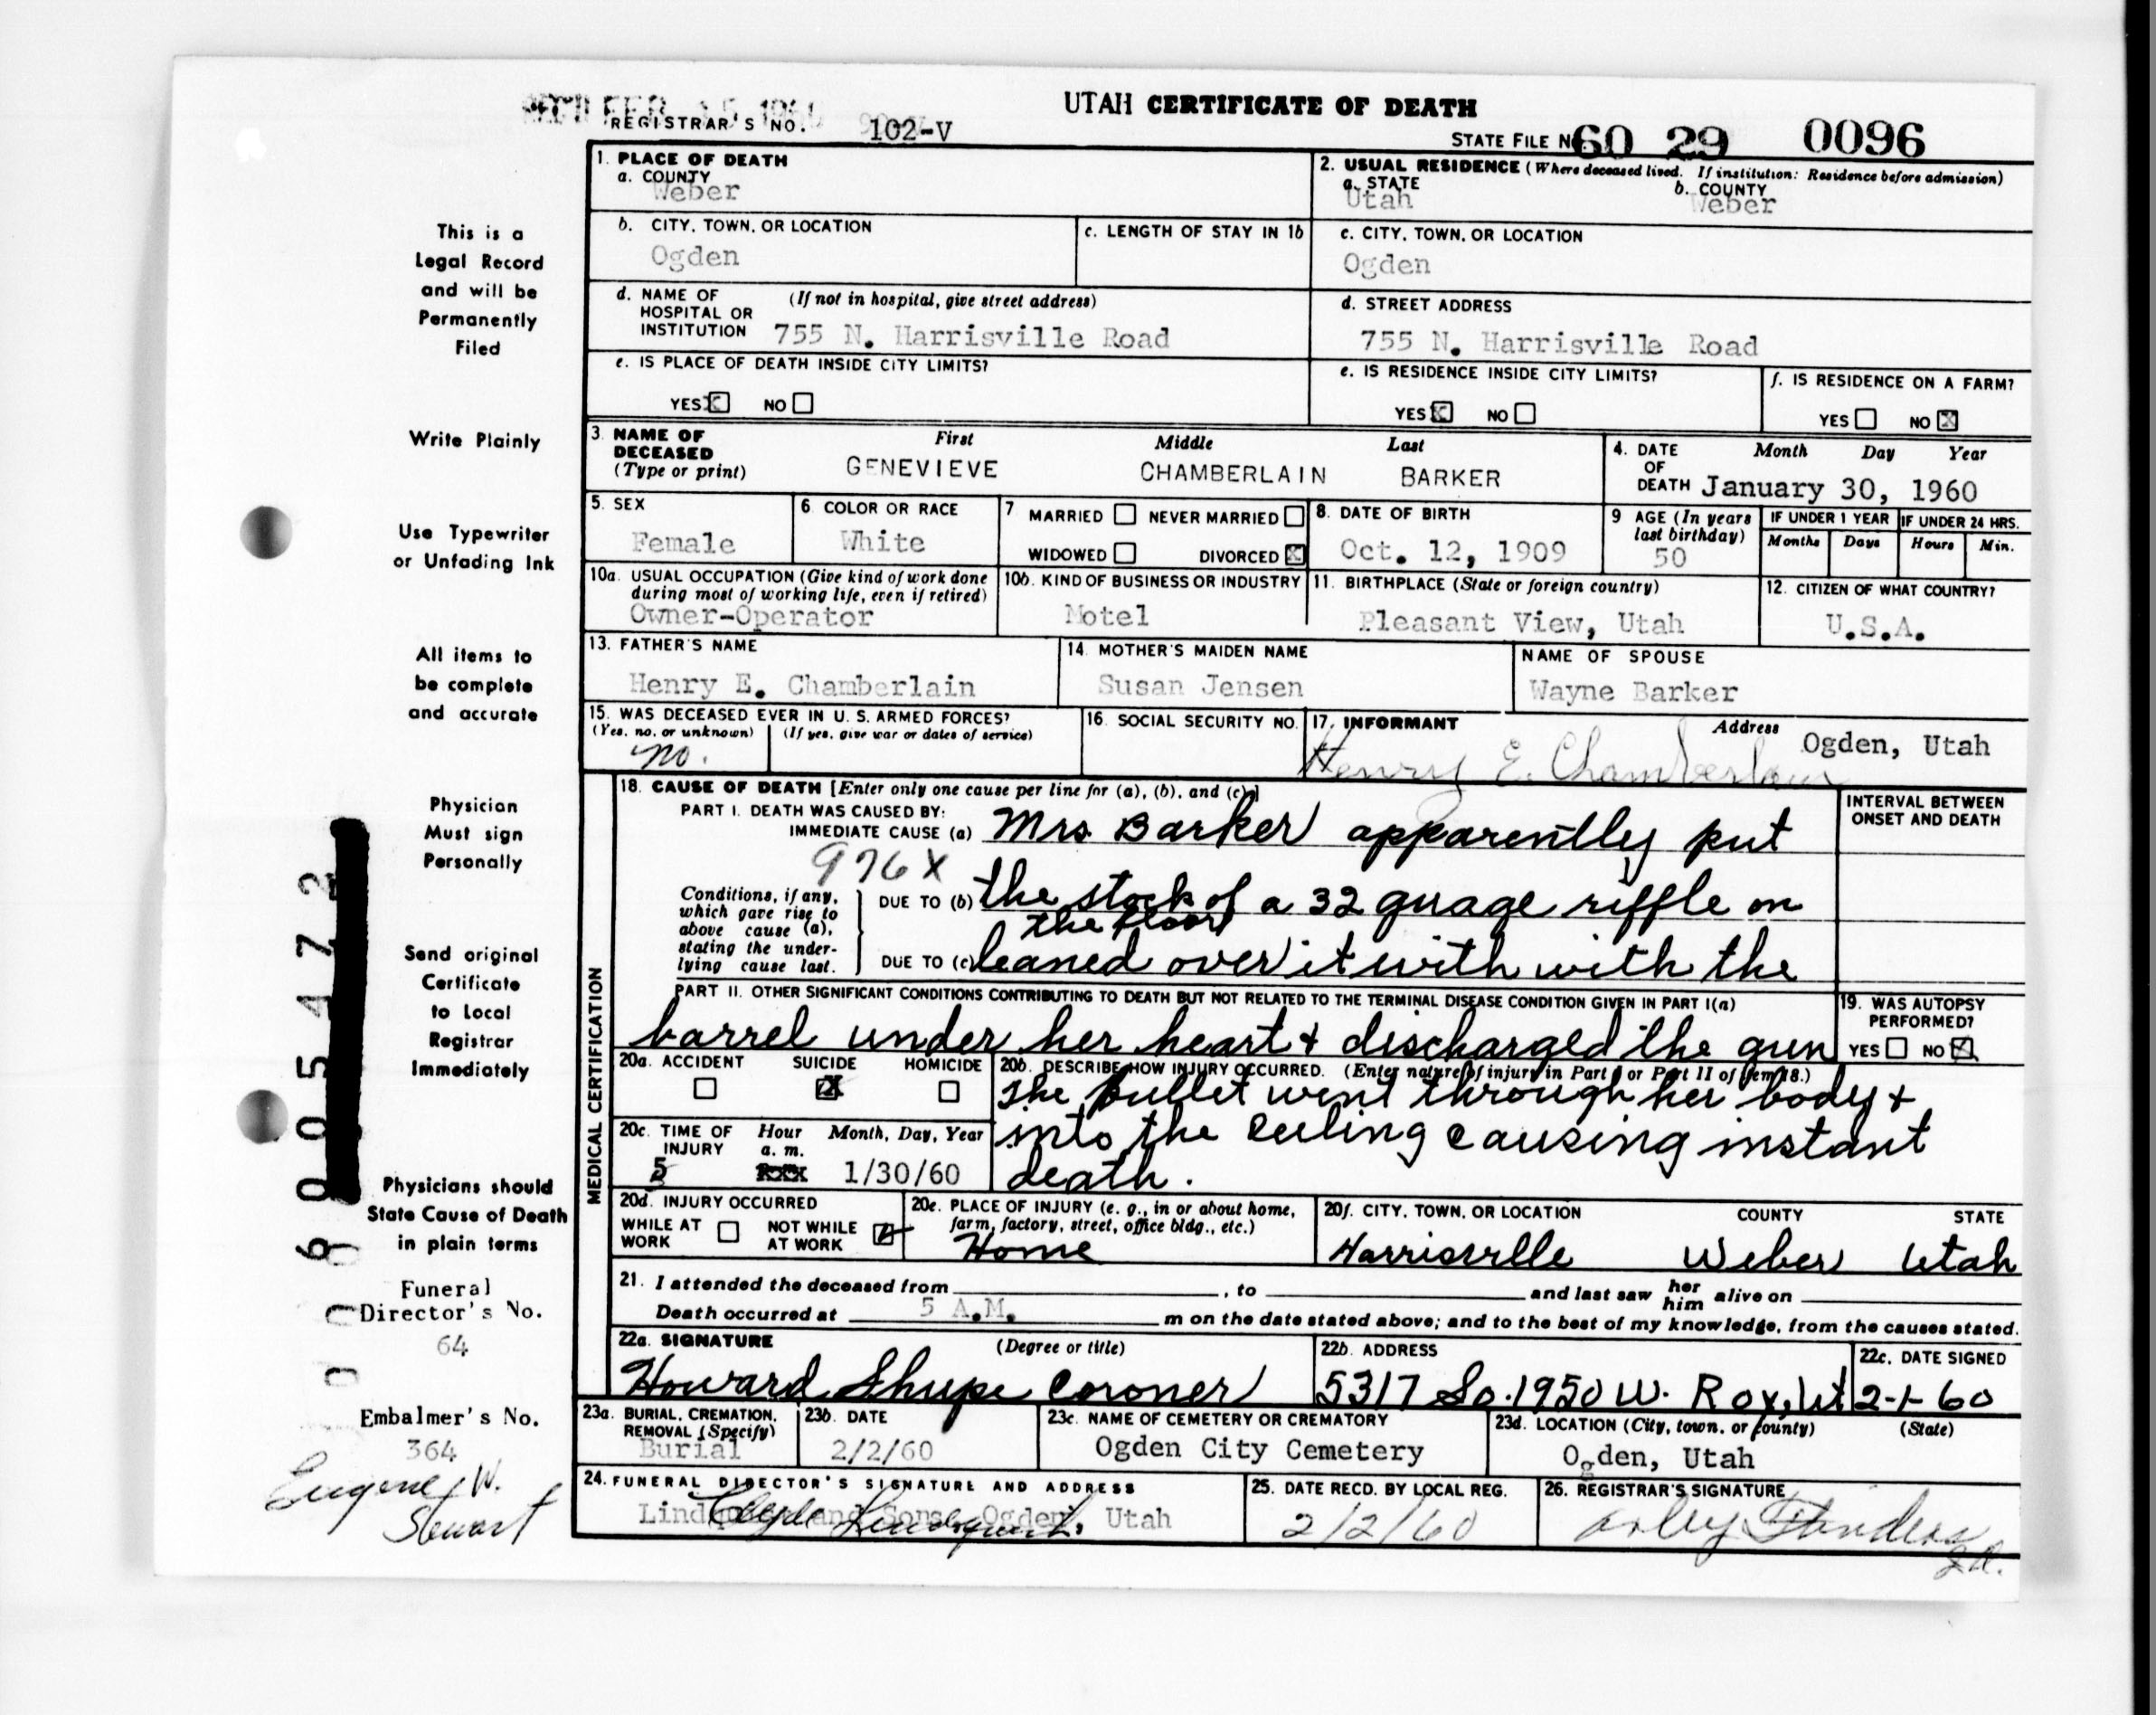 UTAH CERTIFICATE OF DEATH
REC'D FEB 15 1960
REGISTRAR'S NO. 102-V
STATE FILE NO. 60 29 0096
1. PLACE OF DEATH
a. COUNTY
Weber
2. USUAL RESIDENCE (Where deceased lived. If institution: Residence before admission)
a. STATE b. COUNTY
Utah Weber
b. CITY, TOWN, OR LOCATION
Ogden
c. LENGTH OF STAY IN 1b
c. CITY, TOWN, OR LOCATION
Ogden
d. NAME OF (If not in hospital, give street address)
HOSPITAL OR
INSTITUTION 755 N. Harrisville Road
d. STREET ADDRESS
755 N. Harrisville Road
e. IS PLACE OF DEATH INSIDE CITY LIMITS?
YES X NO
e. IS RESIDENCE INSIDE CITY LIMITS?
YES X NO
f. IS RESIDENCE ON A FARM?
YES NO X
3. NAME OF DECEASED (Type or print) First Middle Last
GENEVIEVE CHAMBERLAIN BARKER
4. DATE OF DEATH Month Day Year
January 30, 1960
5. SEX
Female
6. COLOR OR RACE
White
7. MARRIED NEVER MARRIED
WIDOWED DIVORCED X
8. DATE OF BIRTH
Oct. 12, 1909
9. AGE (In years last birthday)
50
IF UNDER 1 YEAR IF UNDER 24 HRS.
Months Days Hours Min.
10a. USUAL OCCUPATION (Give kind of work done during most of working life, even if retired)
Owner-Operator
10b. KIND OF BUSINESS OR INDUSTRY
Motel
11. BIRTHPLACE (State or foreign country)
Pleasant View, Utah
12. CITIZEN OF WHAT COUNTRY?
U.S.A.
13. FATHER'S NAME
Henry E. Chamberlain
14. MOTHER'S MAIDEN NAME
Susan Jensen
NAME OF SPOUSE
Wayne Barker
15. WAS DECEASED EVER IN U. S. ARMED FORCES?
(Yes, no, or unknown) (If yes, give war or dates of service)
no.
16. SOCIAL SECURITY NO.
17. INFORMANT Address
Henry E. Chamberlain Ogden, Utah
MEDICAL CERTIFICATION
18. CAUSE OF DEATH [Enter only one cause per line for (a), (b), and (c).]
INTERVAL BETWEEN ONSET AND DEATH
PART I. DEATH WAS CAUSED BY:
IMMEDIATE CAUSE (a) Mrs. Barker apparently put
976X
Conditions, if any, which gave rise to above cause (a), stating the underlying cause last.
DUE TO (b) the stock of a 32 guage riffle on
the floor
DUE TO (c) leaned over it with with the
PART II. OTHER SIGNIFICANT CONDITIONS CONTRIBUTING TO DEATH BUT NOT RELATED TO THE TERMINAL DISEASE CONDITION GIVEN IN PART I(a)
barrel under her heart & discharged the gun
19. WAS AUTOPSY PERFORMED?
YES NO X
20a. ACCIDENT SUICIDE HOMICIDE
X
20b. DESCRIBE HOW INJURY OCCURRED. (Enter nature of injury in Part I or Part II of item 18.)
the bullet went through her body &
into the ceiling causing instant
death.
20c. TIME OF INJURY Hour a. m. Month, Day, Year
5 1/30/60
20d. INJURY OCCURRED
WHILE AT WORK NOT WHILE AT WORK
20e. PLACE OF INJURY (e. g., in or about home, farm, factory, street, office bldg., etc.)
Home
20f. CITY, TOWN, OR LOCATION COUNTY STATE
Harrisville Weber Utah
21. I attended the deceased from , to and last saw her him alive on
Death occurred at 5 A.M. m on the date stated above; and to the best of my knowledge, from the causes stated.
22a. SIGNATURE (Degree or title)
Howard Shupe Coroner
22b. ADDRESS
5317 So. 1950 W. Roy, Ut
22c. DATE SIGNED
2-1-60
23a. BURIAL, CREMATION, REMOVAL (Specify)
Burial
23b. DATE
2/2/60
23c. NAME OF CEMETERY OR CREMATORY
Ogden City Cemetery
23d. LOCATION (City, town, or county) (State)
Ogden, Utah
24. FUNERAL DIRECTOR'S SIGNATURE AND ADDRESS
Lindquist and Sons, Ogden, Utah
25. DATE RECD. BY LOCAL REG.
2/2/60
26. REGISTRAR'S SIGNATURE
This is a
Legal Record
and will be
Permanently
Filed
Write Plainly
Use Typewriter
or Unfading Ink
All items to
be complete
and accurate
Physician
Must sign
Personally
Send original
Certificate
to Local
Registrar
Immediately
Physicians should
State Cause of Death
in plain terms
Funeral
Director's No.
64
Embalmer's No.
364
Eugene W.
Stewart